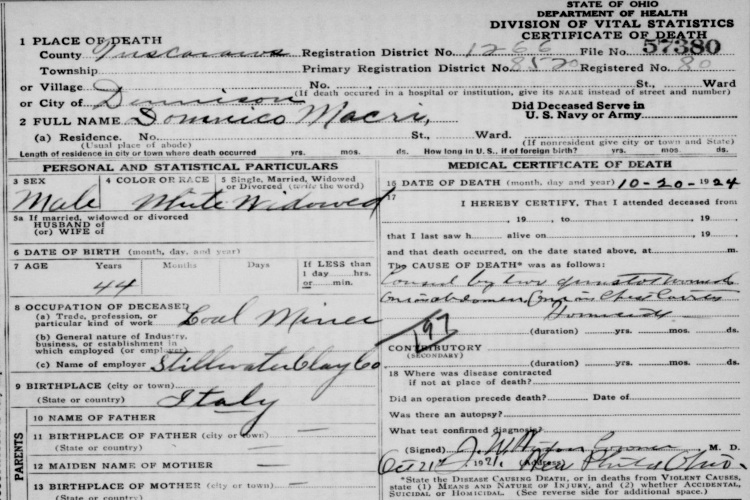 STATE OF OHIO
DEPARTMENT OF HEALTH
DIVISION OF VITAL STATISTICS
CERTIFICATE OF DEATH
1 PLACE OF DEATH
County Tuscarawas Registration District No. 1266 File No. 57380
Township Primary Registration District No. 8520 Registered No. 80
or Village No. , St., Ward
(If death occured in a hospital or institution, give its NAME instead of street and number)
or City of Dennison
Did Deceased Serve in
U. S. Navy or Army
2 FULL NAME Dominico Macri,
(a) Residence. No. St., Ward.
(Usual place of abode) (If nonresident give city or town and State)
Length of residence in city or town where death occurred yrs. mos. ds. How long in U. S., if of foreign birth? yrs. mos. ds.
PERSONAL AND STATISTICAL PARTICULARS
3 SEX 4 COLOR OR RACE 5 Single, Married, Widowed
or Divorced (write the word)
Male White Widowed
5a If married, widowed or divorced
HUSBAND of
(or) WIFE of
6 DATE OF BIRTH (month, day, and year)
7 AGE Years Months Days If LESS than
1 day hrs.
or min.
44
8 OCCUPATION OF DECEASED
(a) Trade, profession, or
particular kind of work Coal Miner
(b) General nature of Industry,
business, or establishment in
which employed (or employer)
(c) Name of employer Stillwater Clay Co
9 BIRTHPLACE (city or town)
(State or country) Italy
PARENTS
10 NAME OF FATHER
11 BIRTHPLACE OF FATHER (city or town)
(State or country)
12 MAIDEN NAME OF MOTHER
13 BIRTHPLACE OF MOTHER (city or town)
MEDICAL CERTIFICATE OF DEATH
16 DATE OF DEATH (month, day and year) 10-20-1924
17
I HEREBY CERTIFY, That I attended deceased from
, 19 , to , 19
that I last saw h alive on , 19
and that death occurred, on the date stated above, at m.
The CAUSE OF DEATH* was as follows:
Caused by two gunshot wounds
One in abdomen One in Chest
Homicide
(duration) yrs. mos. ds.
CONTRIBUTORY
(SECONDARY)
(duration) yrs. mos. ds.
18 Where was disease contracted
if not at place of death?
Did an operation precede death? Date of
Was there an autopsy?
What test confirmed diagnosis?
(Signed) Coroner M. D.
Oct 21st, 192 (Address) New Phila Ohio.
*State the DISEASE CAUSING DEATH, or in deaths from VIOLENT CAUSES,
state (1) MEANS AND NATURE OF INJURY, and (2) whether ACCIDENTAL,
SUICIDAL or HOMICIDAL. (See reverse side for additional space.)